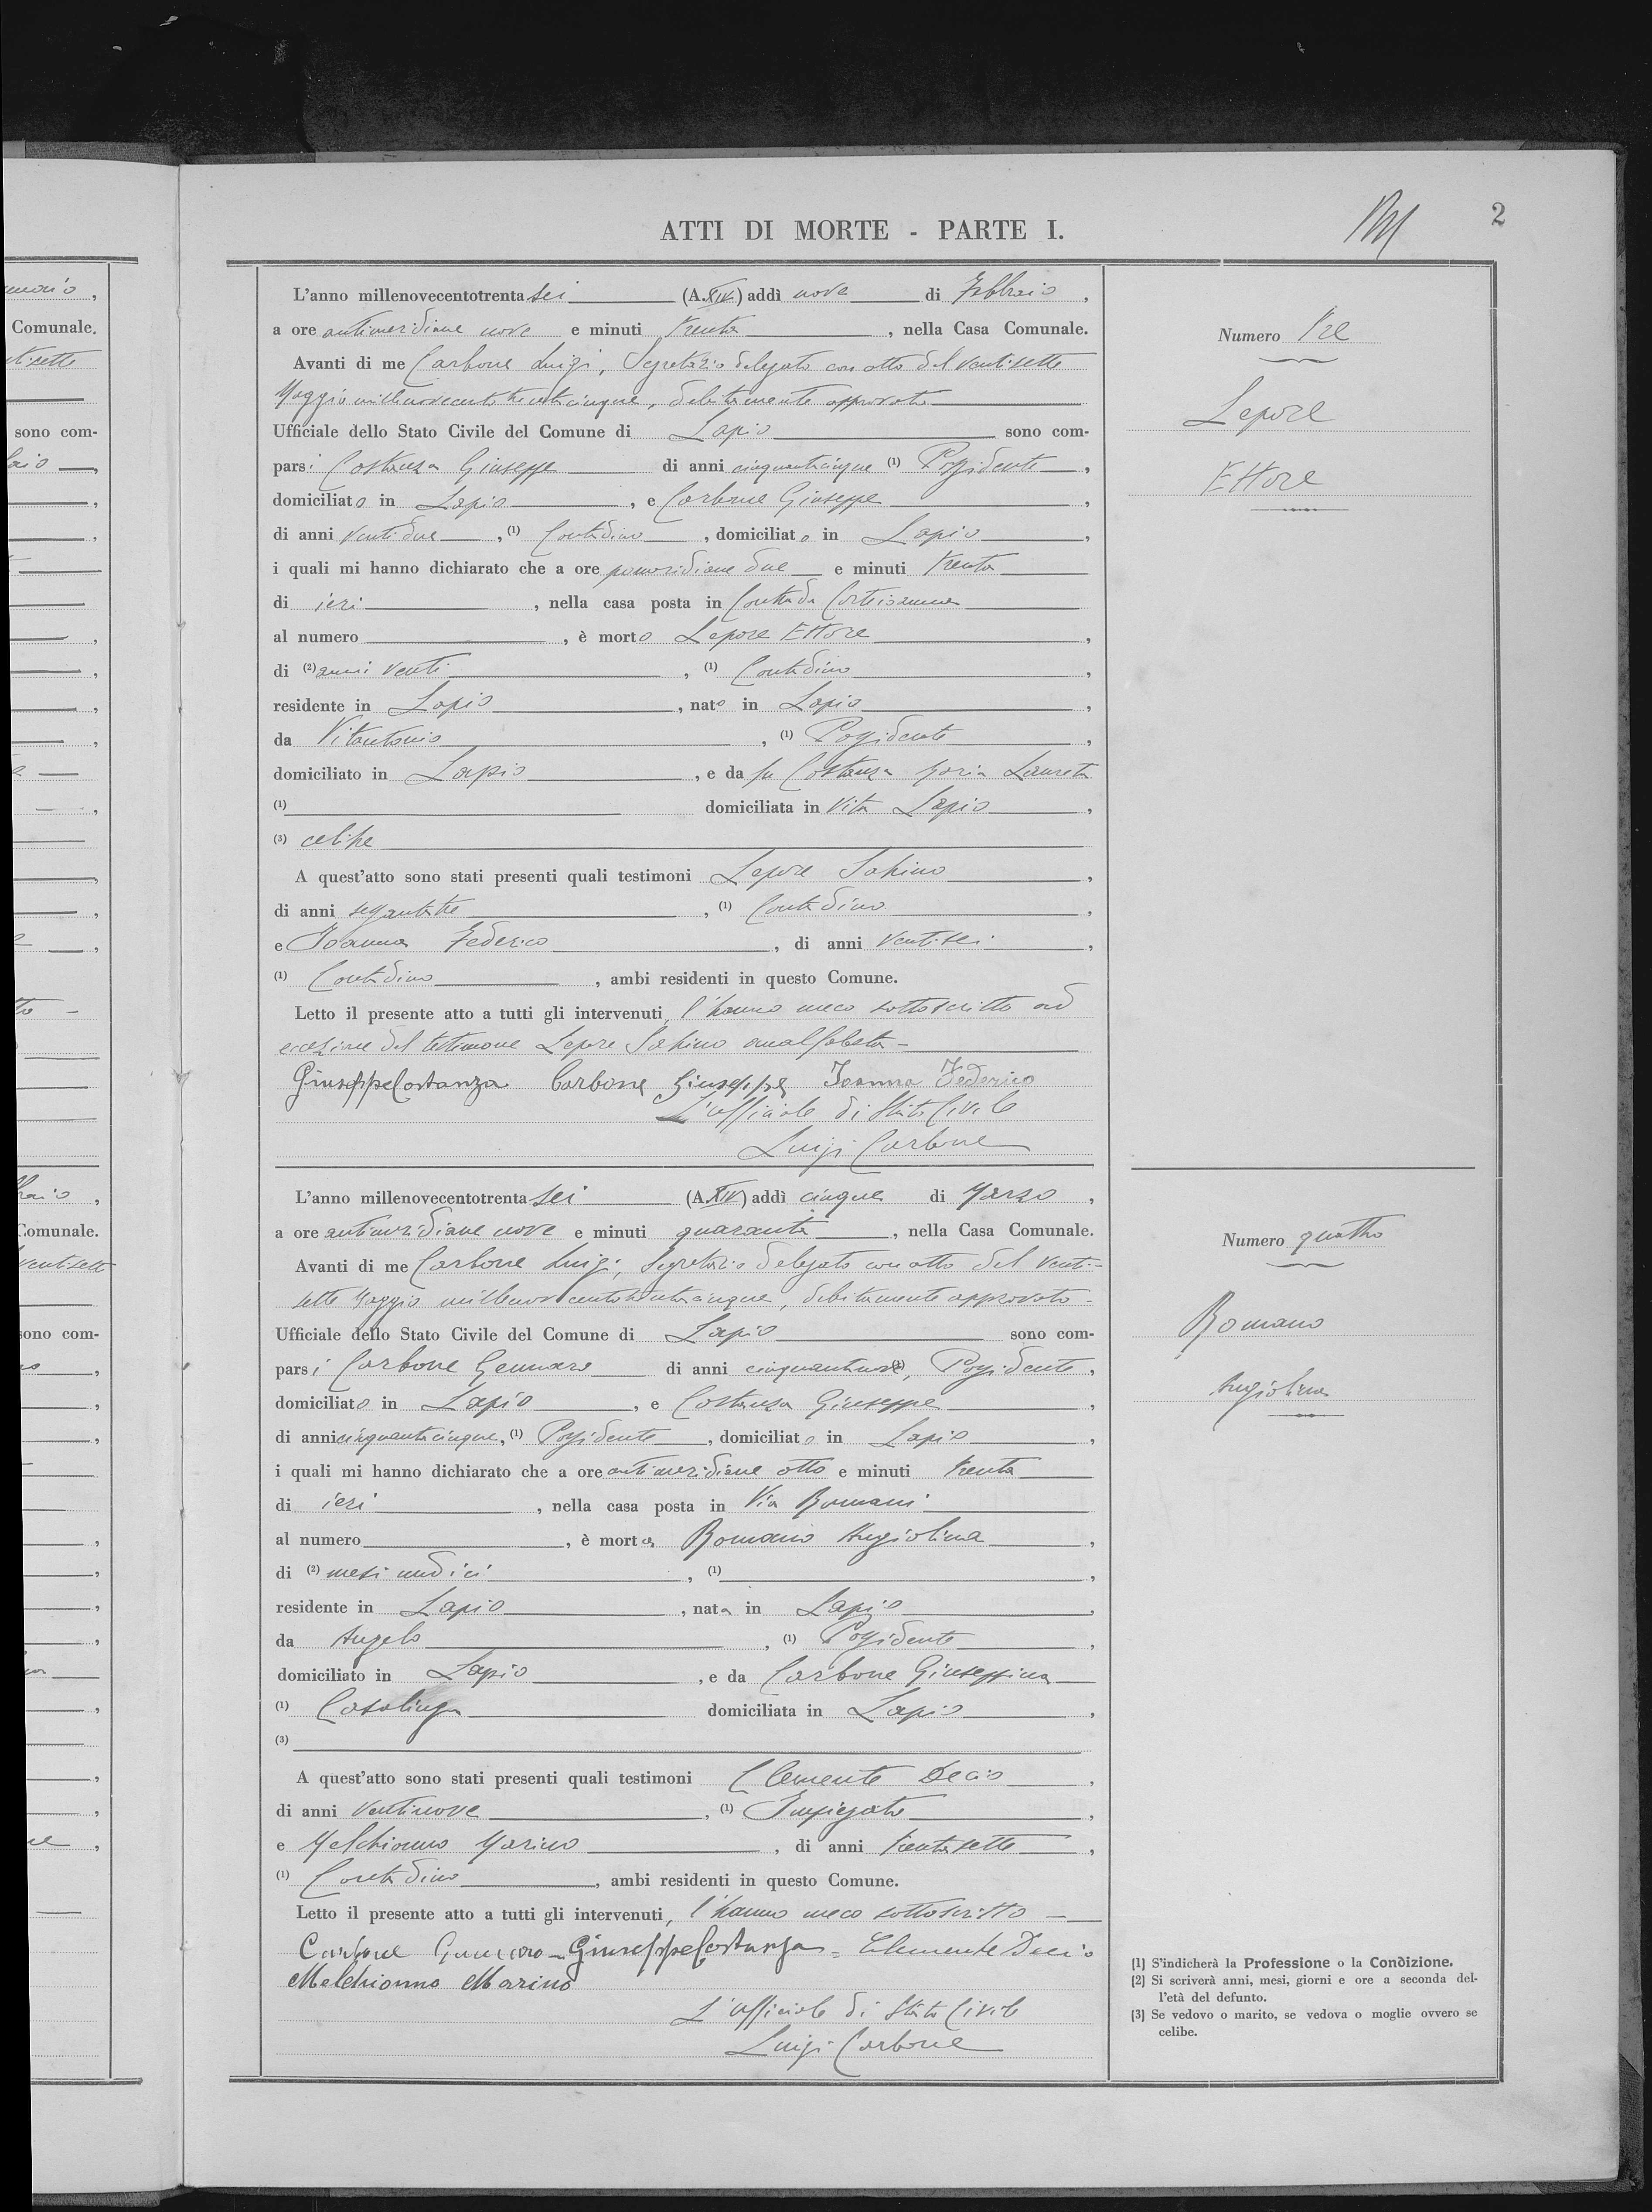 ATTI DI MORTE - PARTE I.
2
L'anno millenovecentotrenta sei (A. XIV) addì nove di Febbraio,
a ore antimeridiane nove e minuti trenta, nella Casa Comunale.
Avanti di me Carbone Luigi, Segretario delegato con atto del ventisette
Maggio millenovecentotrentacinque, debitamente approvato
Ufficiale dello Stato Civile del Comune di Lapio sono com-
parsi Costanza Giuseppe di anni cinquantacinque (1) Possidente,
domiciliato in Lapio, e Carbone Giuseppe,
di anni ventidue, (1) Contadino, domiciliato in Lapio,
i quali mi hanno dichiarato che a ore pomeridiane due e minuti trenta
di ieri, nella casa posta in Contrada
al numero, è morto Lepore Ettore,
di (2) anni venti, (1) Contadino,
residente in Lapio, nato in Lapio,
da Vitantonio, (1) Possidente,
domiciliato in Lapio, e da fu Costanza Maria Laureta
(1) domiciliata in vita Lapio,
(3) celibe
A quest'atto sono stati presenti quali testimoni Lepore Sabino,
di anni sessantatre, (1) Contadino,
e Ioanna Federico, di anni ventisei,
(1) Contadino, ambi residenti in questo Comune.
Letto il presente atto a tutti gli intervenuti, l'hanno meco sottoscritto ad
eccezione del testimone Lepore Sabino analfabeta -
Giuseppe Costanza Carbone Giuseppe Ioanna Federico
L'ufficiale di Stato Civile
Luigi Carbone
Numero tre
Lepore
Ettore
L'anno millenovecentotrenta sei (A. XIV) addì cinque di Marzo,
a ore antimeridiane nove e minuti quaranta, nella Casa Comunale.
Avanti di me Carbone Luigi, Segretario delegato con atto del venti-
sette Maggio millenovecentotrentacinque, debitamente approvato -
Ufficiale dello Stato Civile del Comune di Lapio sono com-
parsi Carbone Gennaro di anni cinquantanove (1), Possidente,
domiciliato in Lapio, e Costanza Giuseppe,
di anni cinquantacinque, (1) Possidente, domiciliato in Lapio,
i quali mi hanno dichiarato che a ore antimeridiane otto e minuti trenta
di ieri, nella casa posta in Via Romani
al numero, è morta Romano Angiolina,
di (2) mesi undici, (1),
residente in Lapio, nata in Lapio,
da Angelo, (1) Possidente,
domiciliato in Lapio, e da Carbone Giuseppina
(1) Casalinga domiciliata in Lapio,
(3)
A quest'atto sono stati presenti quali testimoni Clemente Decio,
di anni ventinove, (1) Impiegato,
e Melchionno Marino, di anni trentasette,
(1) Contadino, ambi residenti in questo Comune.
Letto il presente atto a tutti gli intervenuti, l'hanno meco sottoscritto -
Carbone Gennaro - Giuseppe Costanza - Clemente Decio
Melchionno Marino
L'ufficiale di Stato Civile
Luigi Carbone
Numero quattro
Romano
Angiolina
[1] S'indicherà la Professione o la Condizione.
[2] Si scriverà anni, mesi, giorni e ore a seconda del-
l'età del defunto.
[3] Se vedovo o marito, se vedova o moglie ovvero se
celibe.
Comunale.
sono com-
Comunale.
ventisett
sono com-